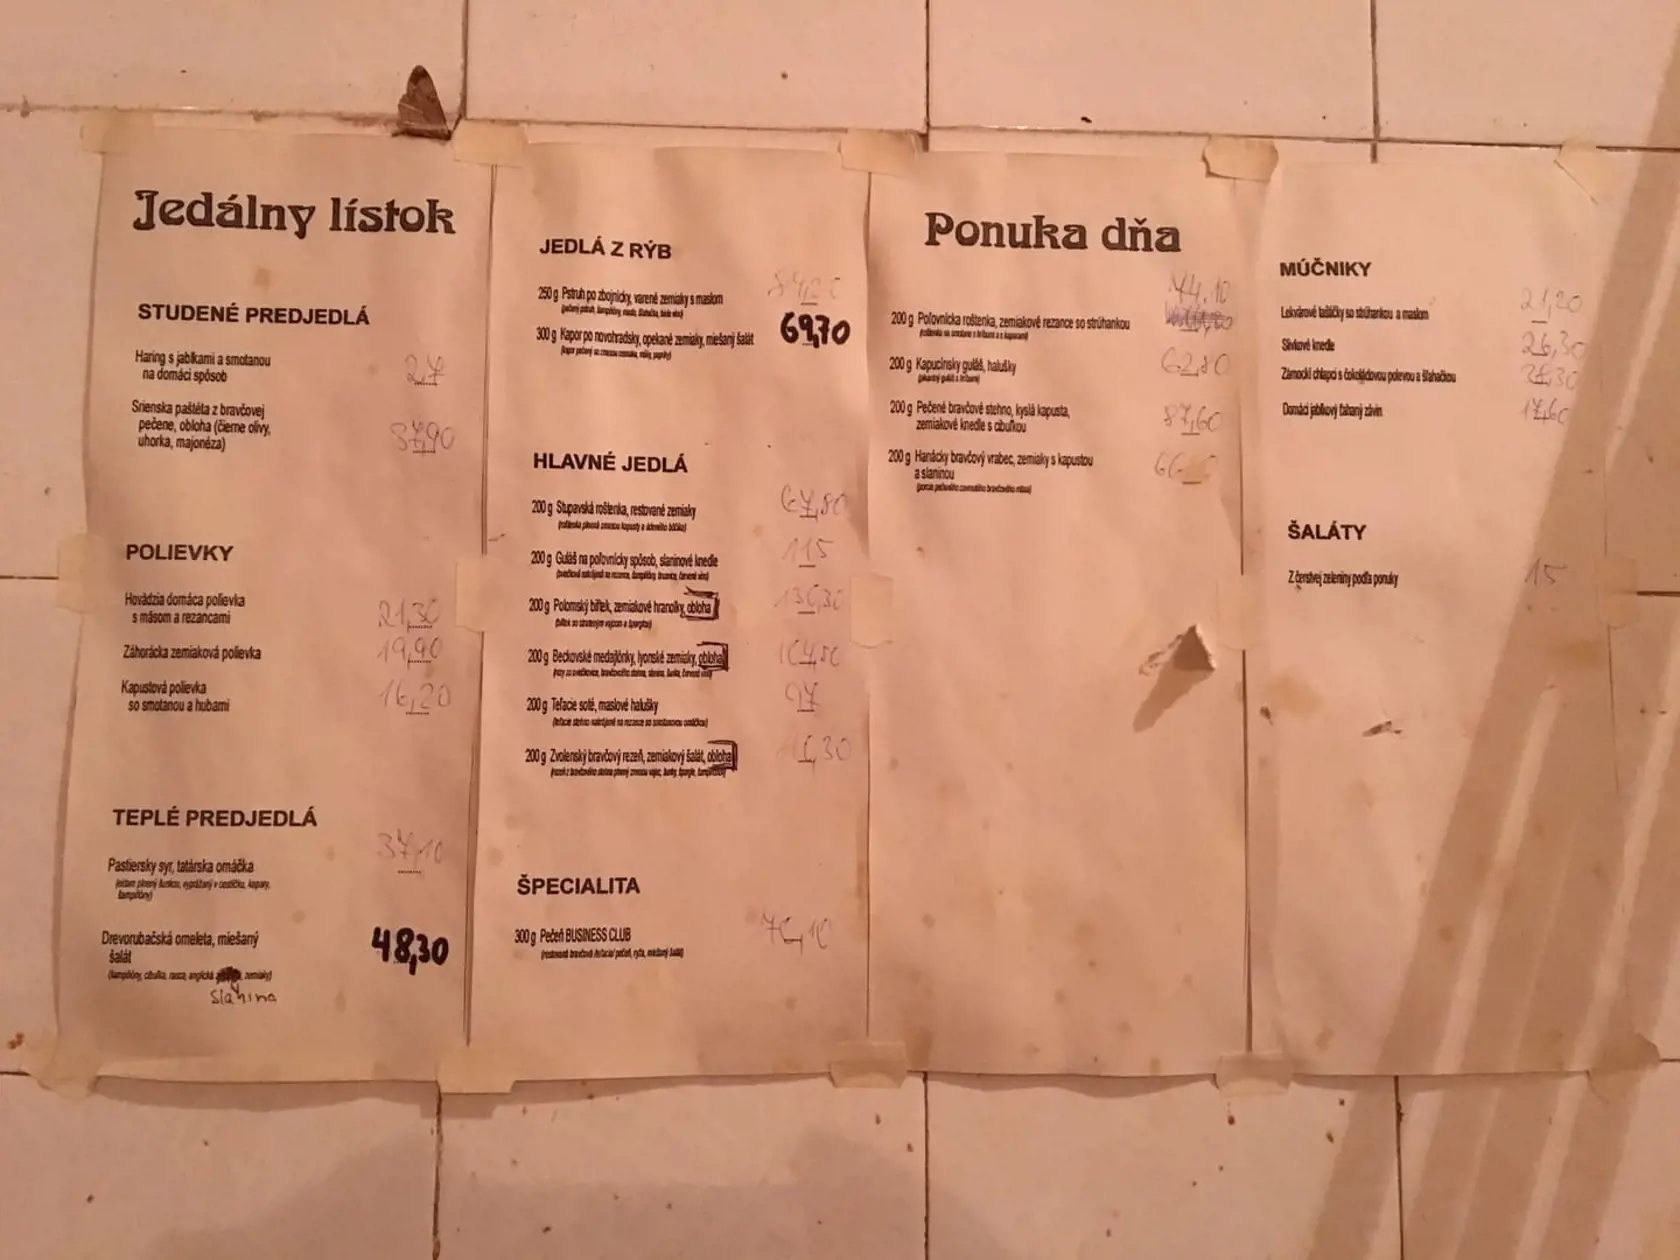 Jedálny lístok
STUDENÉ PREDJEDLÁ
Haring s jablkami a smotanou
na domáci spôsob
27
Srienska paštéta z bravčovej
pečene, obloha (čierne olivy,
uhorka, majonéza)
37,90
POLIEVKY
Hovädzia domáca polievka
s mäsom a rezancami
21,30
Záhorácka zemiaková polievka
19,90
Kapustová polievka
so smotanou a hubami
16,20
TEPLÉ PREDJEDLÁ
Pastiersky syr, tatárska omáčka
37,10
šampiňóny)
Drevorubačská omeleta, miešaný
šalát
48,30
(šampiňóny, cibuľka, rasca, anglická zemiaky)
slanina
JEDLÁ Z RÝB
250 g Pstruh po zbojnícky, varené zemiaky s maslom
300 g Kapor po novohradsky, opekané zemiaky, miešaný šalát
69,70
HLAVNÉ JEDLÁ
200 g Stupavská roštenka, restované zemiaky
67,80
200 g Guláš na poľovnícky spôsob, slaninové knedle
115
200 g Polomský biftek, zemiakové hranolky, obloha
(biftek so strateným vajcom a špargľou)
200 g Beckovské medajlónky, lyonské zemiaky, obloha
200 g Teľacie soté, maslové halušky
97
(teľacie stehno nakrájané na rezance so smotanovou omáčkou)
200 g Zvolenský bravčový rezeň, zemiakový šalát, obloha
ŠPECIALITA
300 g Pečeň BUSINESS CLUB
(restovaná bravčová teľacia pečeň, ryža, miešaný šalát)
Ponuka dňa
44,10
200 g Poľovnícka roštenka, zemiakové rezance so strúhankou
(roštenka na smotane s hríbami a s kaparami)
200 g Kapucínsky guláš, halušky
(pikantný guláš s hríbami)
62,80
200 g Pečené bravčové stehno, kyslá kapusta,
zemiakové knedle s cibuľkou
87,60
200 g Hanácky bravčový vrabec, zemiaky s kapustou
a slaninou
MÚČNIKY
Lekvárové taštičky so strúhankou a maslom
21,20
Slivkové knedle
26,30
Zámockí chlapci s čokoládovou polevou a šľahačkou
Domáci jablkový ťahaný závin
17,60
ŠALÁTY
Z čerstvej zeleniny podľa ponuky
15